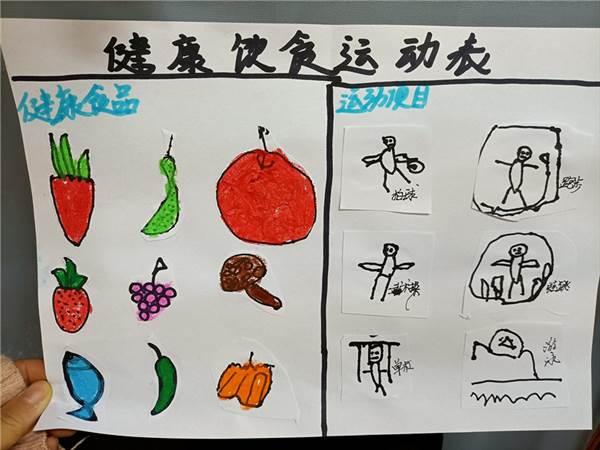 健康饮食运动表
健康食品
运动项目
拍球
跑步
单杠
游泳